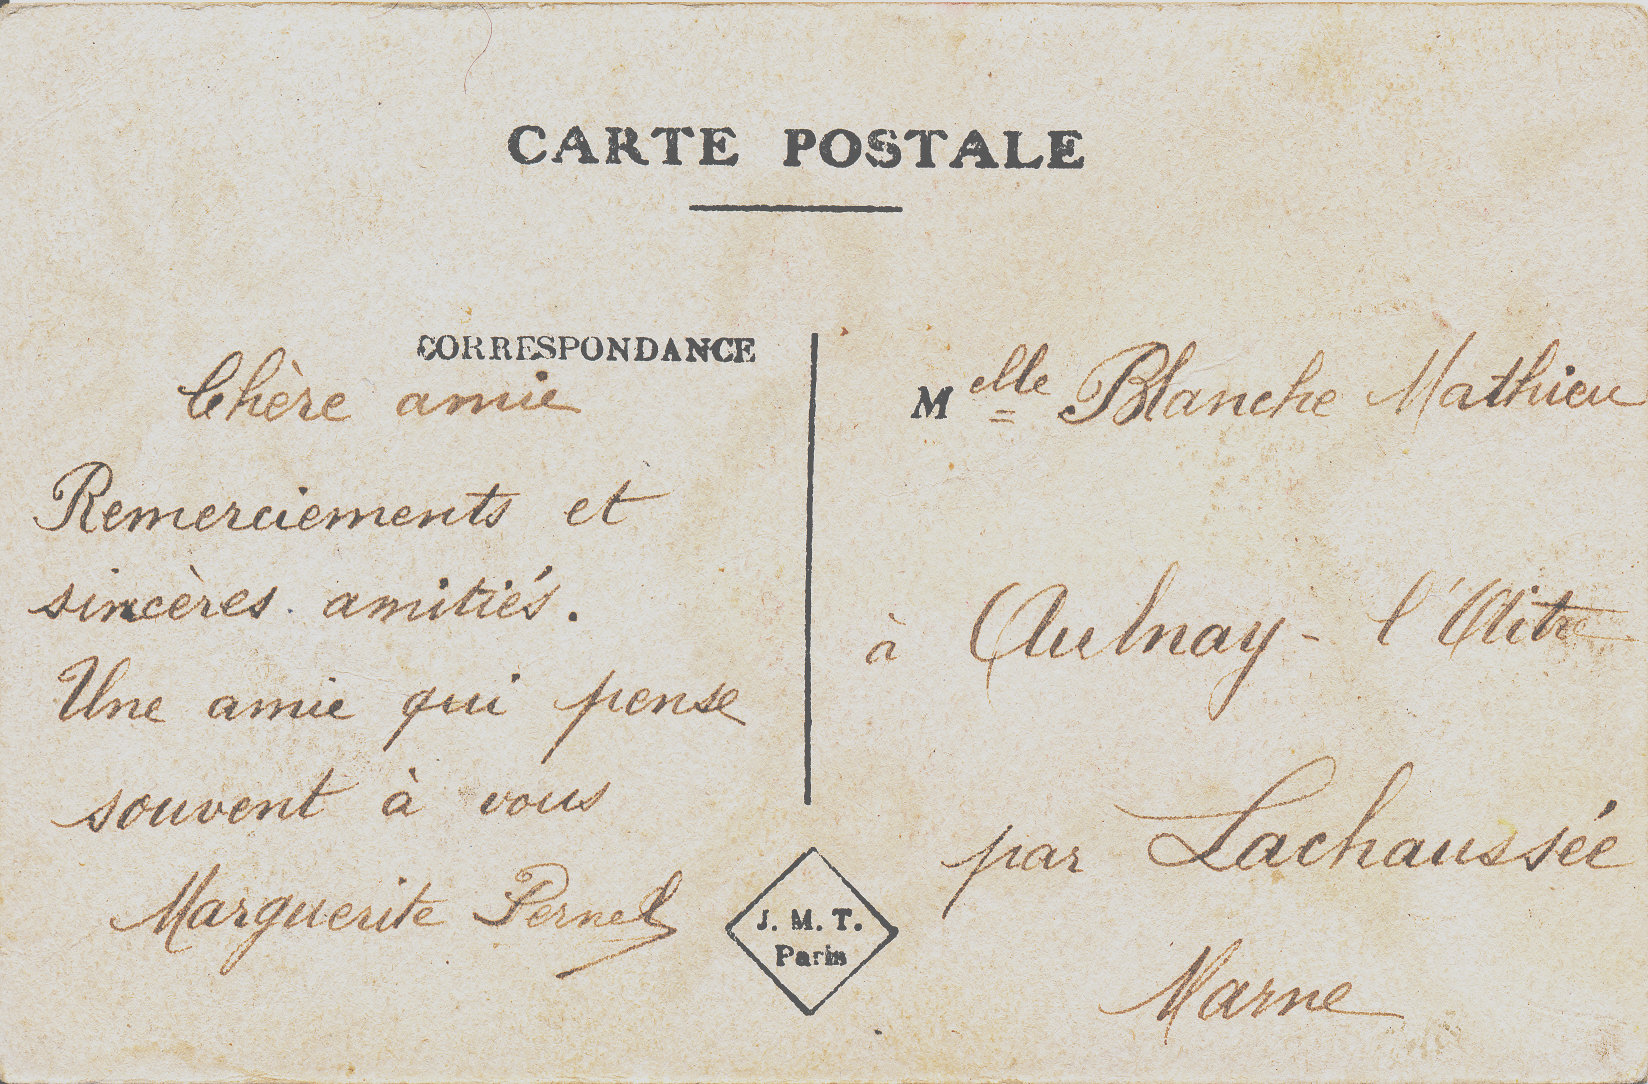 CARTE POSTALE
CORRESPONDANCE
Chère amie
Remerciements et
sincères amitiés.
Une amie qui pense
souvent à vous
Marguerite Pernel
Melle Blanche Mathieu
à Aulnay - l'Aitre
par Lachaussée
Marne
J. M. T.
Paris